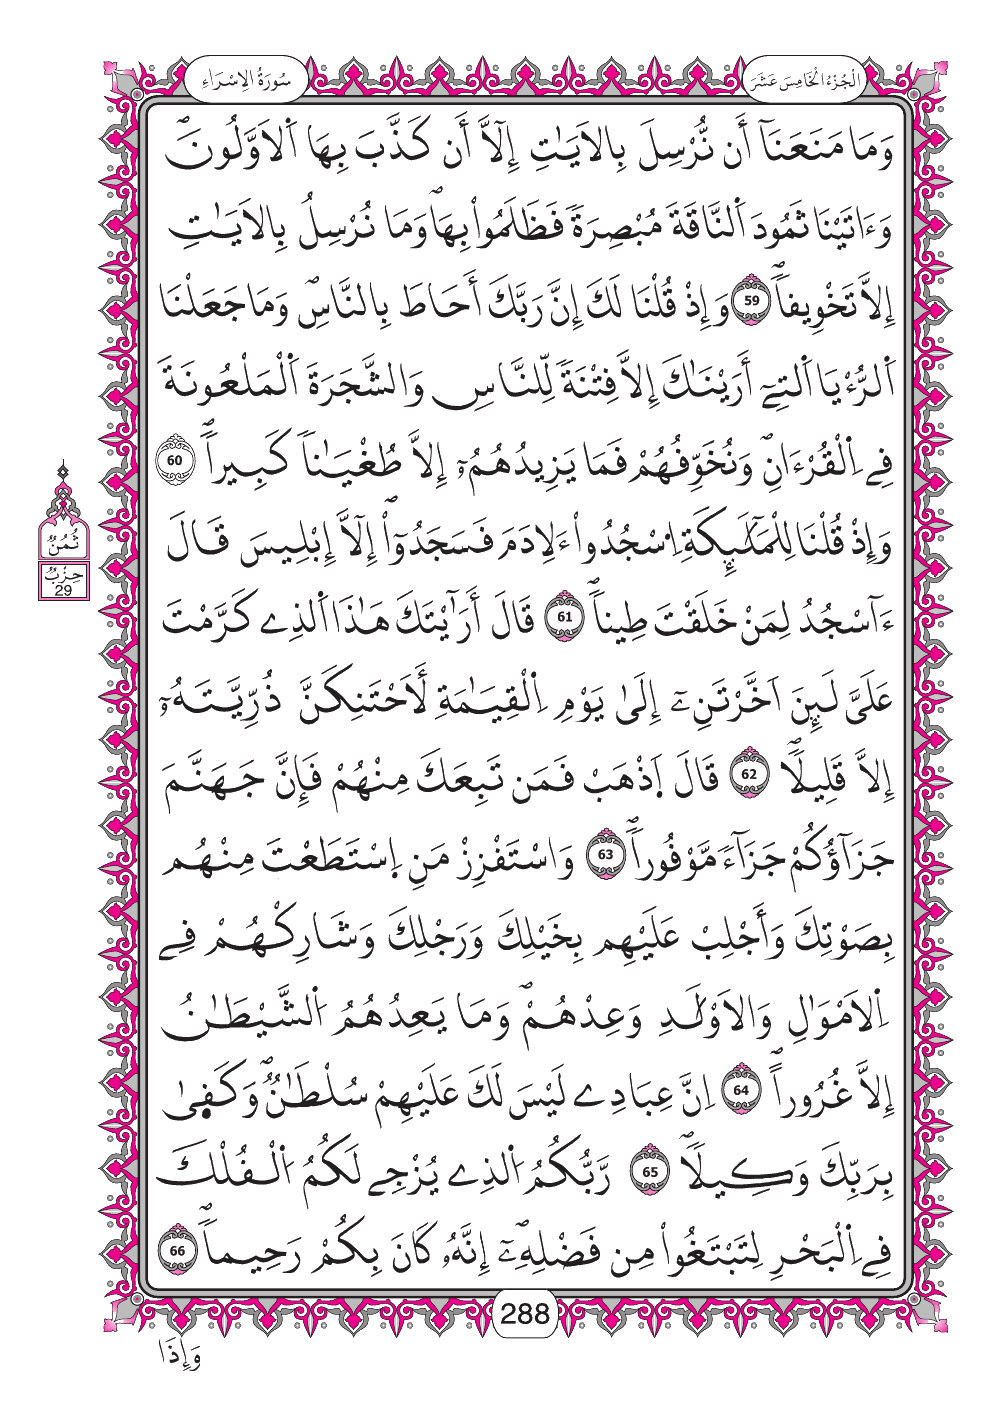 الْجُزْءُ الْخَامِسَ عَشَرَ
سُورَةُ الِاسْرَاءِ
وَمَا مَنَعَنَآ أَن نُّرْسِلَ بِالَايَٰتِ إِلَّآ أَن كَذَّبَ بِهَا اَ۬لَاوَّلُونَۖ
وَءَاتَيْنَا ثَمُودَ اَ۬لنَّاقَةَ مُبْصِرَةٗ فَظَلَمُواْ بِهَاۖ وَمَا نُرْسِلُ بِالَايَٰتِ
إِلَّا تَخْوِيفاٗۖ 59 وَإِذْ قُلْنَا لَكَ إِنَّ رَبَّكَ أَحَاطَ بِالنَّاسِۖ وَمَا جَعَلْنَا
اَ۬لرُّءْيَا اَ۬لتِےٓ أَرَيْنَٰكَ إِلَّا فِتْنَةٗ لِّلنَّاسِ وَالشَّجَرَةَ اَ۬لْمَلْعُونَةَ
فِے اِ۬لْقُرْءَانِۖ وَنُخَوِّفُهُمْ فَمَا يَزِيدُهُمُۥٓ إِلَّا طُغْيَٰناٗ كَبِيراٗۖ 60
وَإِذْ قُلْنَا لِلْمَلَٰٓئِكَةِ اِ۟سْجُدُواْ ءِلَادَمَ فَسَجَدُوٓاْۖ إِلَّآ إِبْلِيسَ قَالَ
ءَآسْجُدُ لِمَنْ خَلَقْتَ طِيناٗۖ 61 قَالَ أَرَٰٓيْتَكَ هَٰذَا اَ۬لذِے كَرَّمْتَ
عَلَيَّ لَئِنَ اَخَّرْتَنِۦٓ إِلَىٰ يَوْمِ اِ۬لْقِيَٰمَةِ لَأَحْتَنِكَنَّ ذُرِّيَّتَهُۥٓ
إِلَّا قَلِيلاٗۖ 62 قَالَ اَ۪ذْهَبْ فَمَن تَبِعَكَ مِنْهُمْ فَإِنَّ جَهَنَّمَ
جَزَآؤُكُمْ جَزَآءٗ مَّوْفُوراٗۖ 63 وَاسْتَفْزِزْ مَنِ اِ۪سْتَطَعْتَ مِنْهُم
بِصَوْتِكَ وَأَجْلِبْ عَلَيْهِم بِخَيْلِكَ وَرَجْلِكَ وَشَارِكْهُمْ فِے
اِ۬لَامْوَٰلِ وَالَاوْلَٰدِ وَعِدْهُمْۖ وَمَا يَعِدُهُمُ اُ۬لشَّيْطَٰنُ
إِلَّا غُرُوراًۖ 64 اِنَّ عِبَادِے لَيْسَ لَكَ عَلَيْهِمْ سُلْطَٰنٞۖ وَكَف۪ىٰ
بِرَبِّكَ وَكِيلاٗۖ 65 رَّبُّكُمُ اُ۬لذِے يُزْجِے لَكُمُ اُ۬لْفُلْكَ
فِے اِ۬لْبَحْرِ لِتَبْتَغُواْ مِن فَضْلِهِۦٓۖ إِنَّهُۥ كَانَ بِكُمْ رَحِيماٗۖ 66
ثُمُنٌ
حِزْبٌ
29
288
وَإِذَا